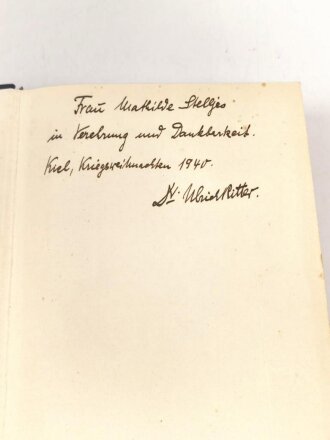 Frau Mathilde Stelljes
in Verehrung und Dankbarkeit.
Kiel, Kriegsweihnachten 1940.
Dr. Ulrich Ritter.